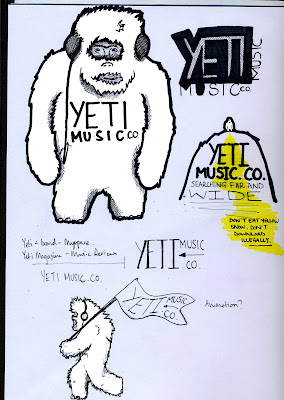 YETI
MUSIC CO.
YETI
MUSIC
MUSIC CO.
YETI
MUSIC. CO.
SEARCHING FAR AND
WIDE
DON'T EAT YELLOW
SNOW. DON'T
DOWNLOAD
ILLEGALLY.
Yeti - band - Myspace.
Yeti Magazine - Music
YETI MUSIC. CO.
YETI MUSIC
CO.
YETI MUSIC
CO.
Animation?